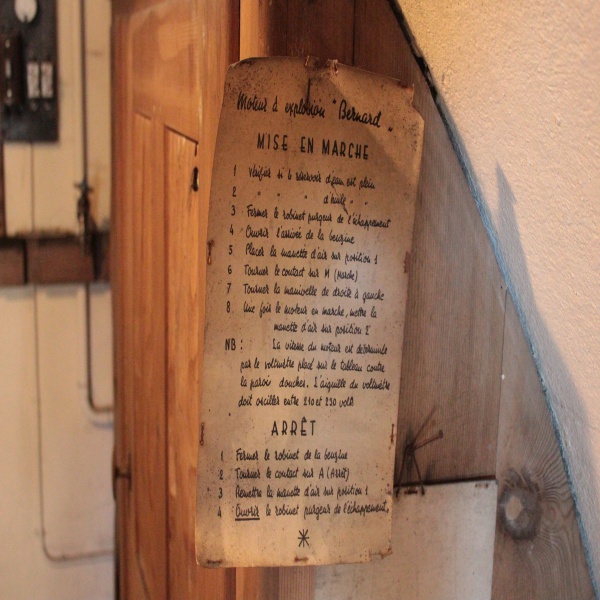 Moteur à explosion "Bernard"
MISE EN MARCHE
1 Vérifier si le réservoir d'eau est plein
2 " " " d'huile " "
3 Fermer le robinet purgeur de l'échappement
4 Ouvrir l'arrivée de la benzine
5 Placer la manette d'air sur position 1
6 Tourner le contact sur M (Marche)
7 Tourner la manivelle de droite à gauche
8 Une fois le moteur en marche, mettre la
manette d'air sur position 2
NB: La vitesse du moteur est déterminée
par le voltmètre placé sur le tableau contre
la paroi douches. L'aiguille du voltmètre
doit osciller entre 210 et 230 volts
ARRÊT
1 Fermer le robinet de la benzine
2 Tourner le contact sur A (Arrêt)
3 Remettre la manette d'air sur position 1
4 Ouvrir le robinet purgeur de l'échappement.